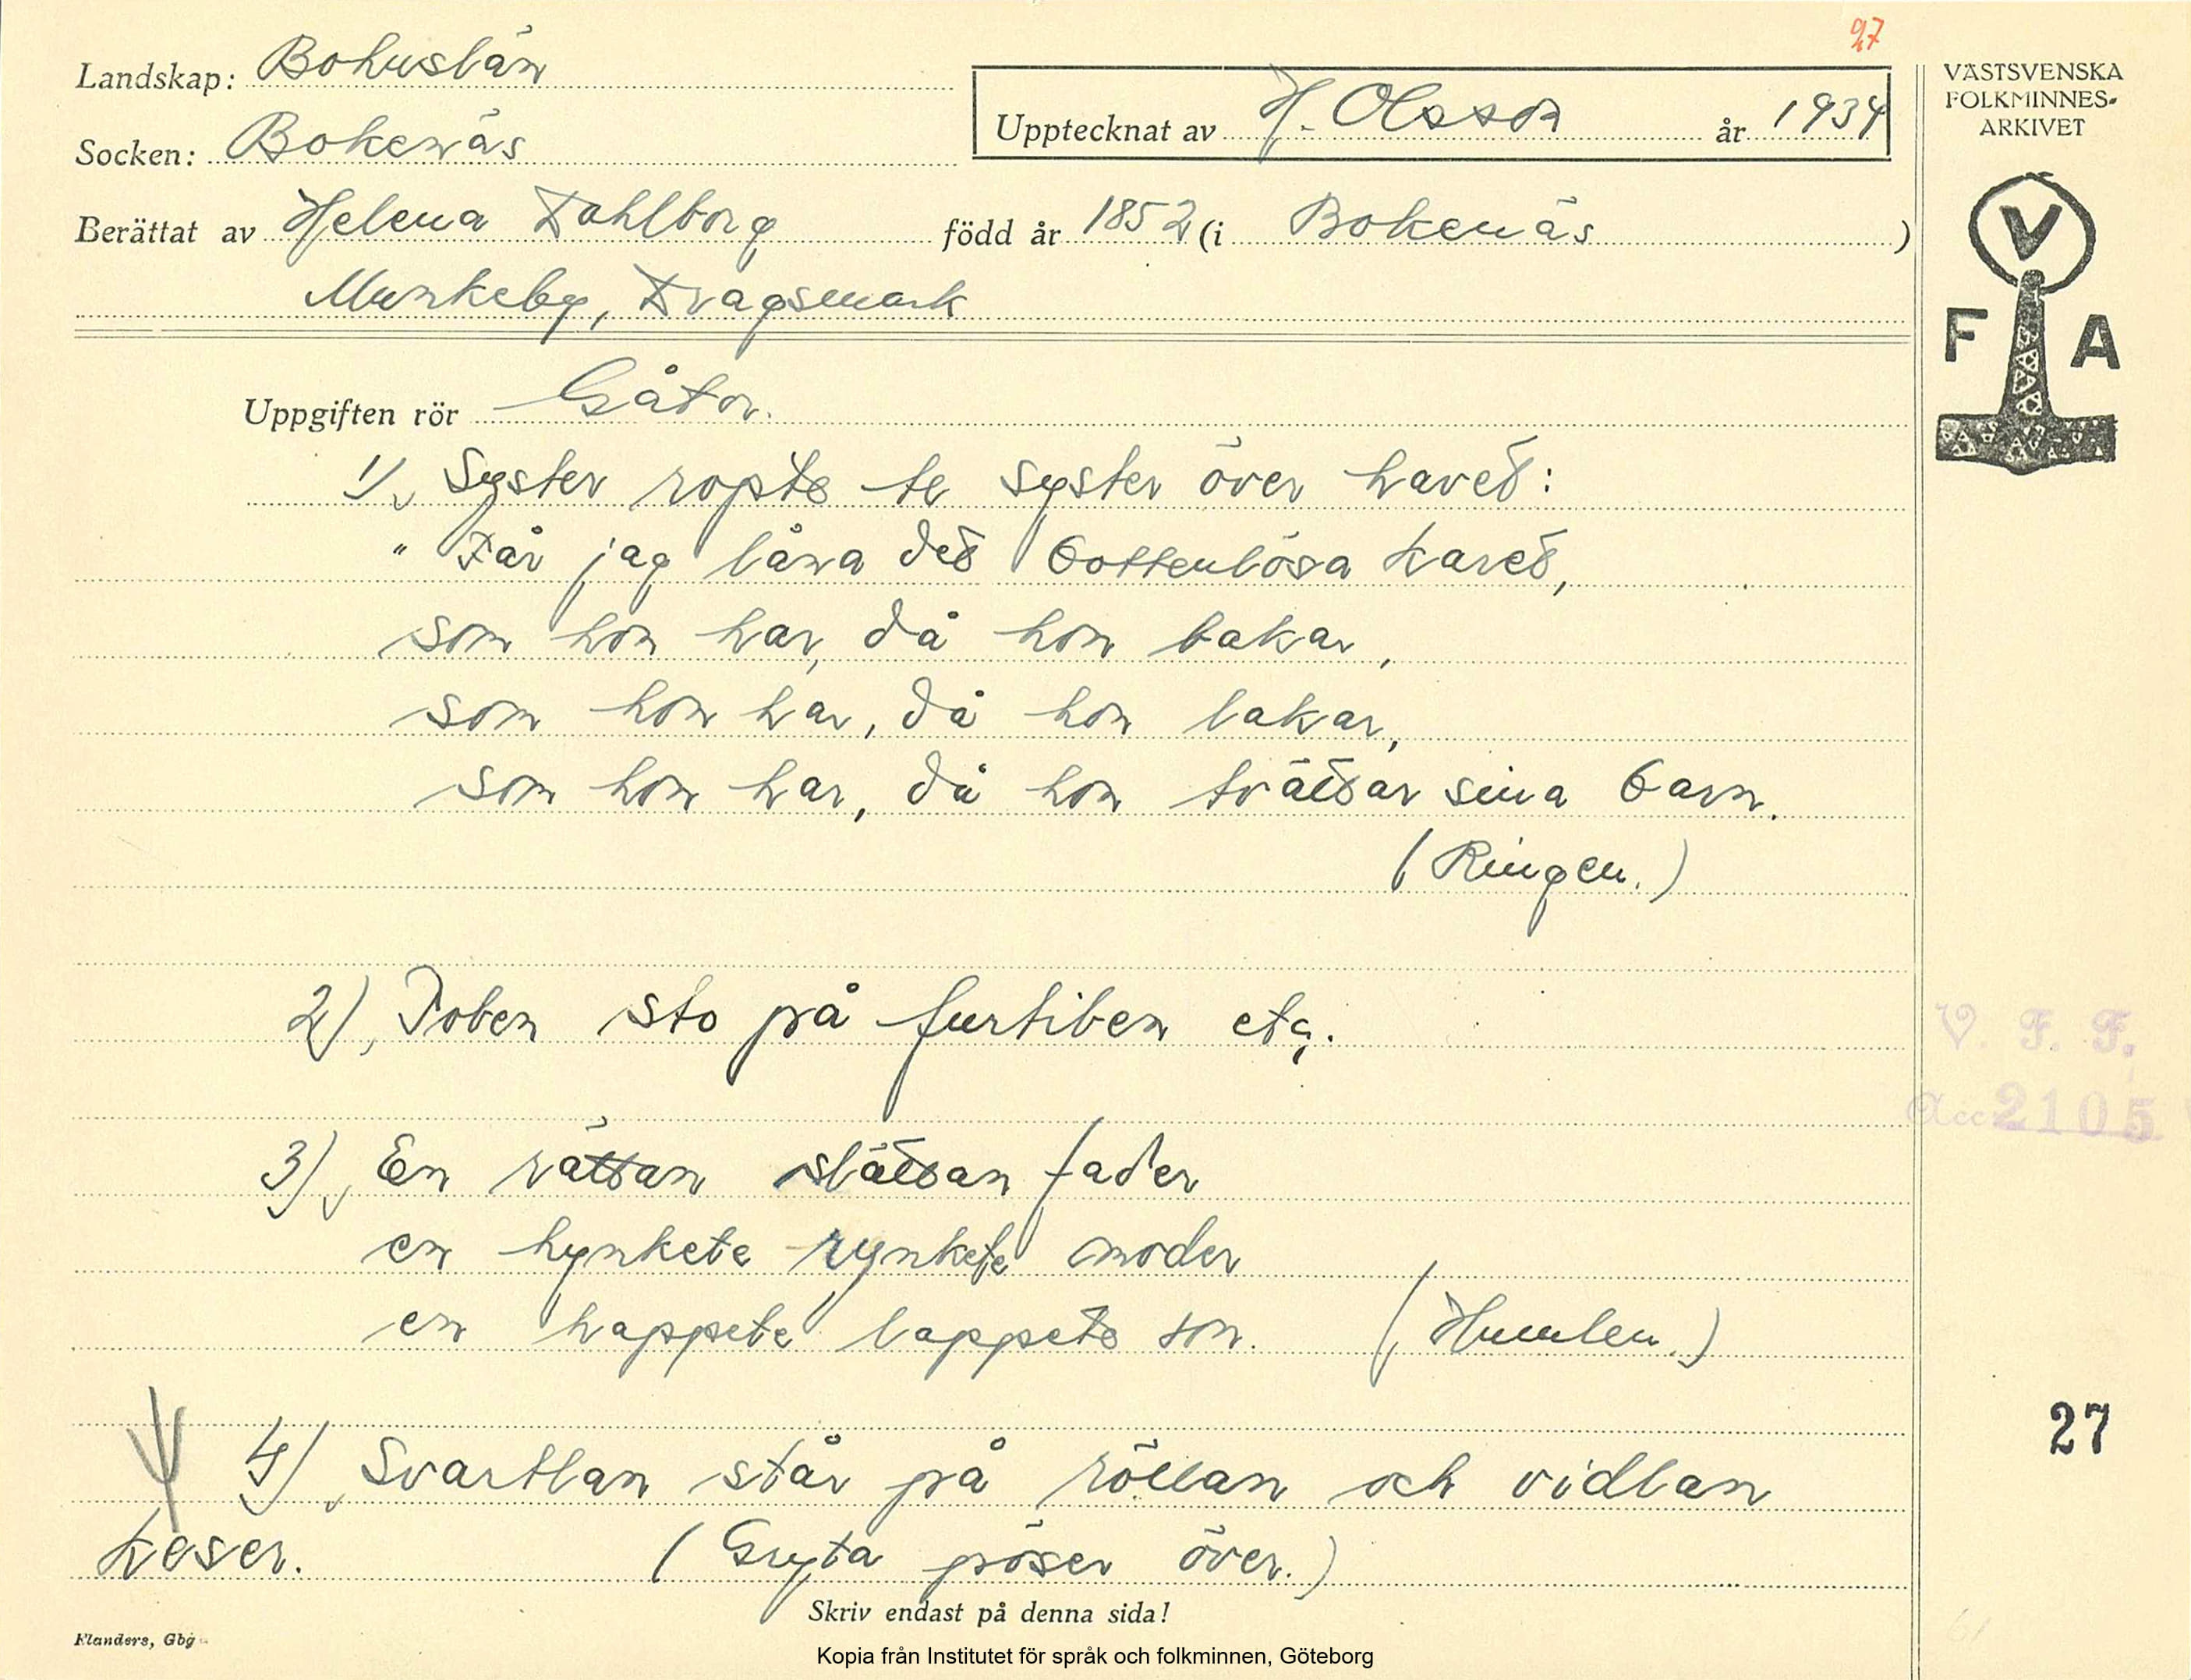 27
Landskap: Bohuslän
Socken: Bokenäs
Upptecknat av H. Olsson år 1934
Berättat av Helena Dahlborg född år 1852 (i Bokenäs)
Munkeby, Dragsmark
VÄSTSVENSKA
FOLKMINNES-
ARKIVET
V
F A
Uppgiften rör Gåtor.
1) Syster ropte te syster över havet:
"Får jag låna det bottenlösa karet,
som hon har, då hon bakar,
som hon har, då hon lakar,
som hon har, då hon tvättar sina barn.
(Ringen.)
2) Poben sto på furtiben etc.
3) En rättan slättan fader
en hynkete rynkete moder
en happete lappete son. (Humlen.)
4) Svartlan står på röllan och vidlan
keser. (Gryta pöser över.)
V. F. F.
Acc 2105
27
Skriv endast på denna sida!
Flanders, Gbg
Kopia från Institutet för språk och folkminnen, Göteborg